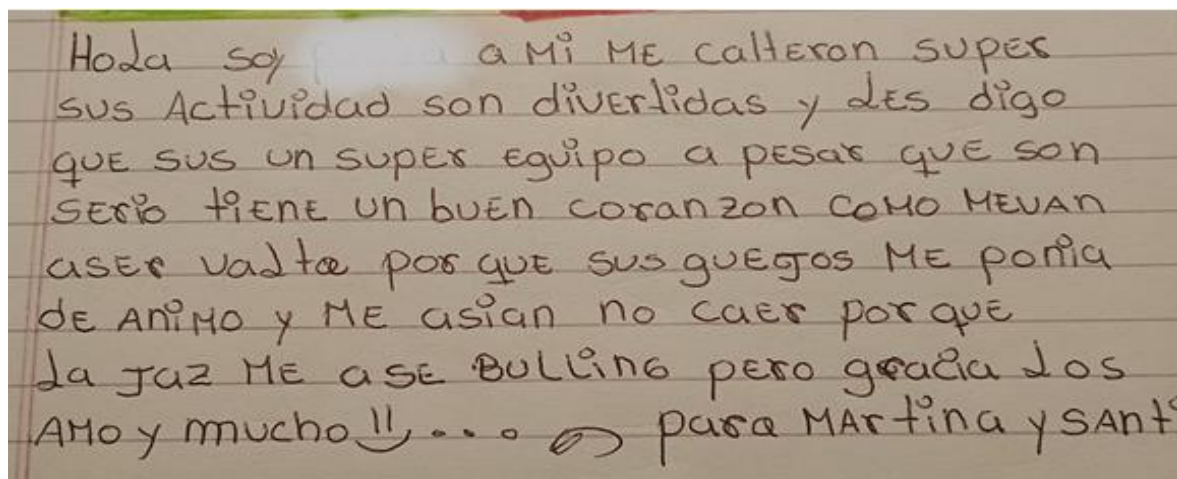 Hola soy a Mi ME calleron super
sus Actividad son divertidas y les digo
que sus un super equipo a pesar que son
serio tiene un buen coranzon como mevan
aser valta por que sus guegos me ponia
de animo y me asian no caer por que
la Jaz me ase Bulling pero gracia los
AMO y mucho !! ... para MArtina y SAnti